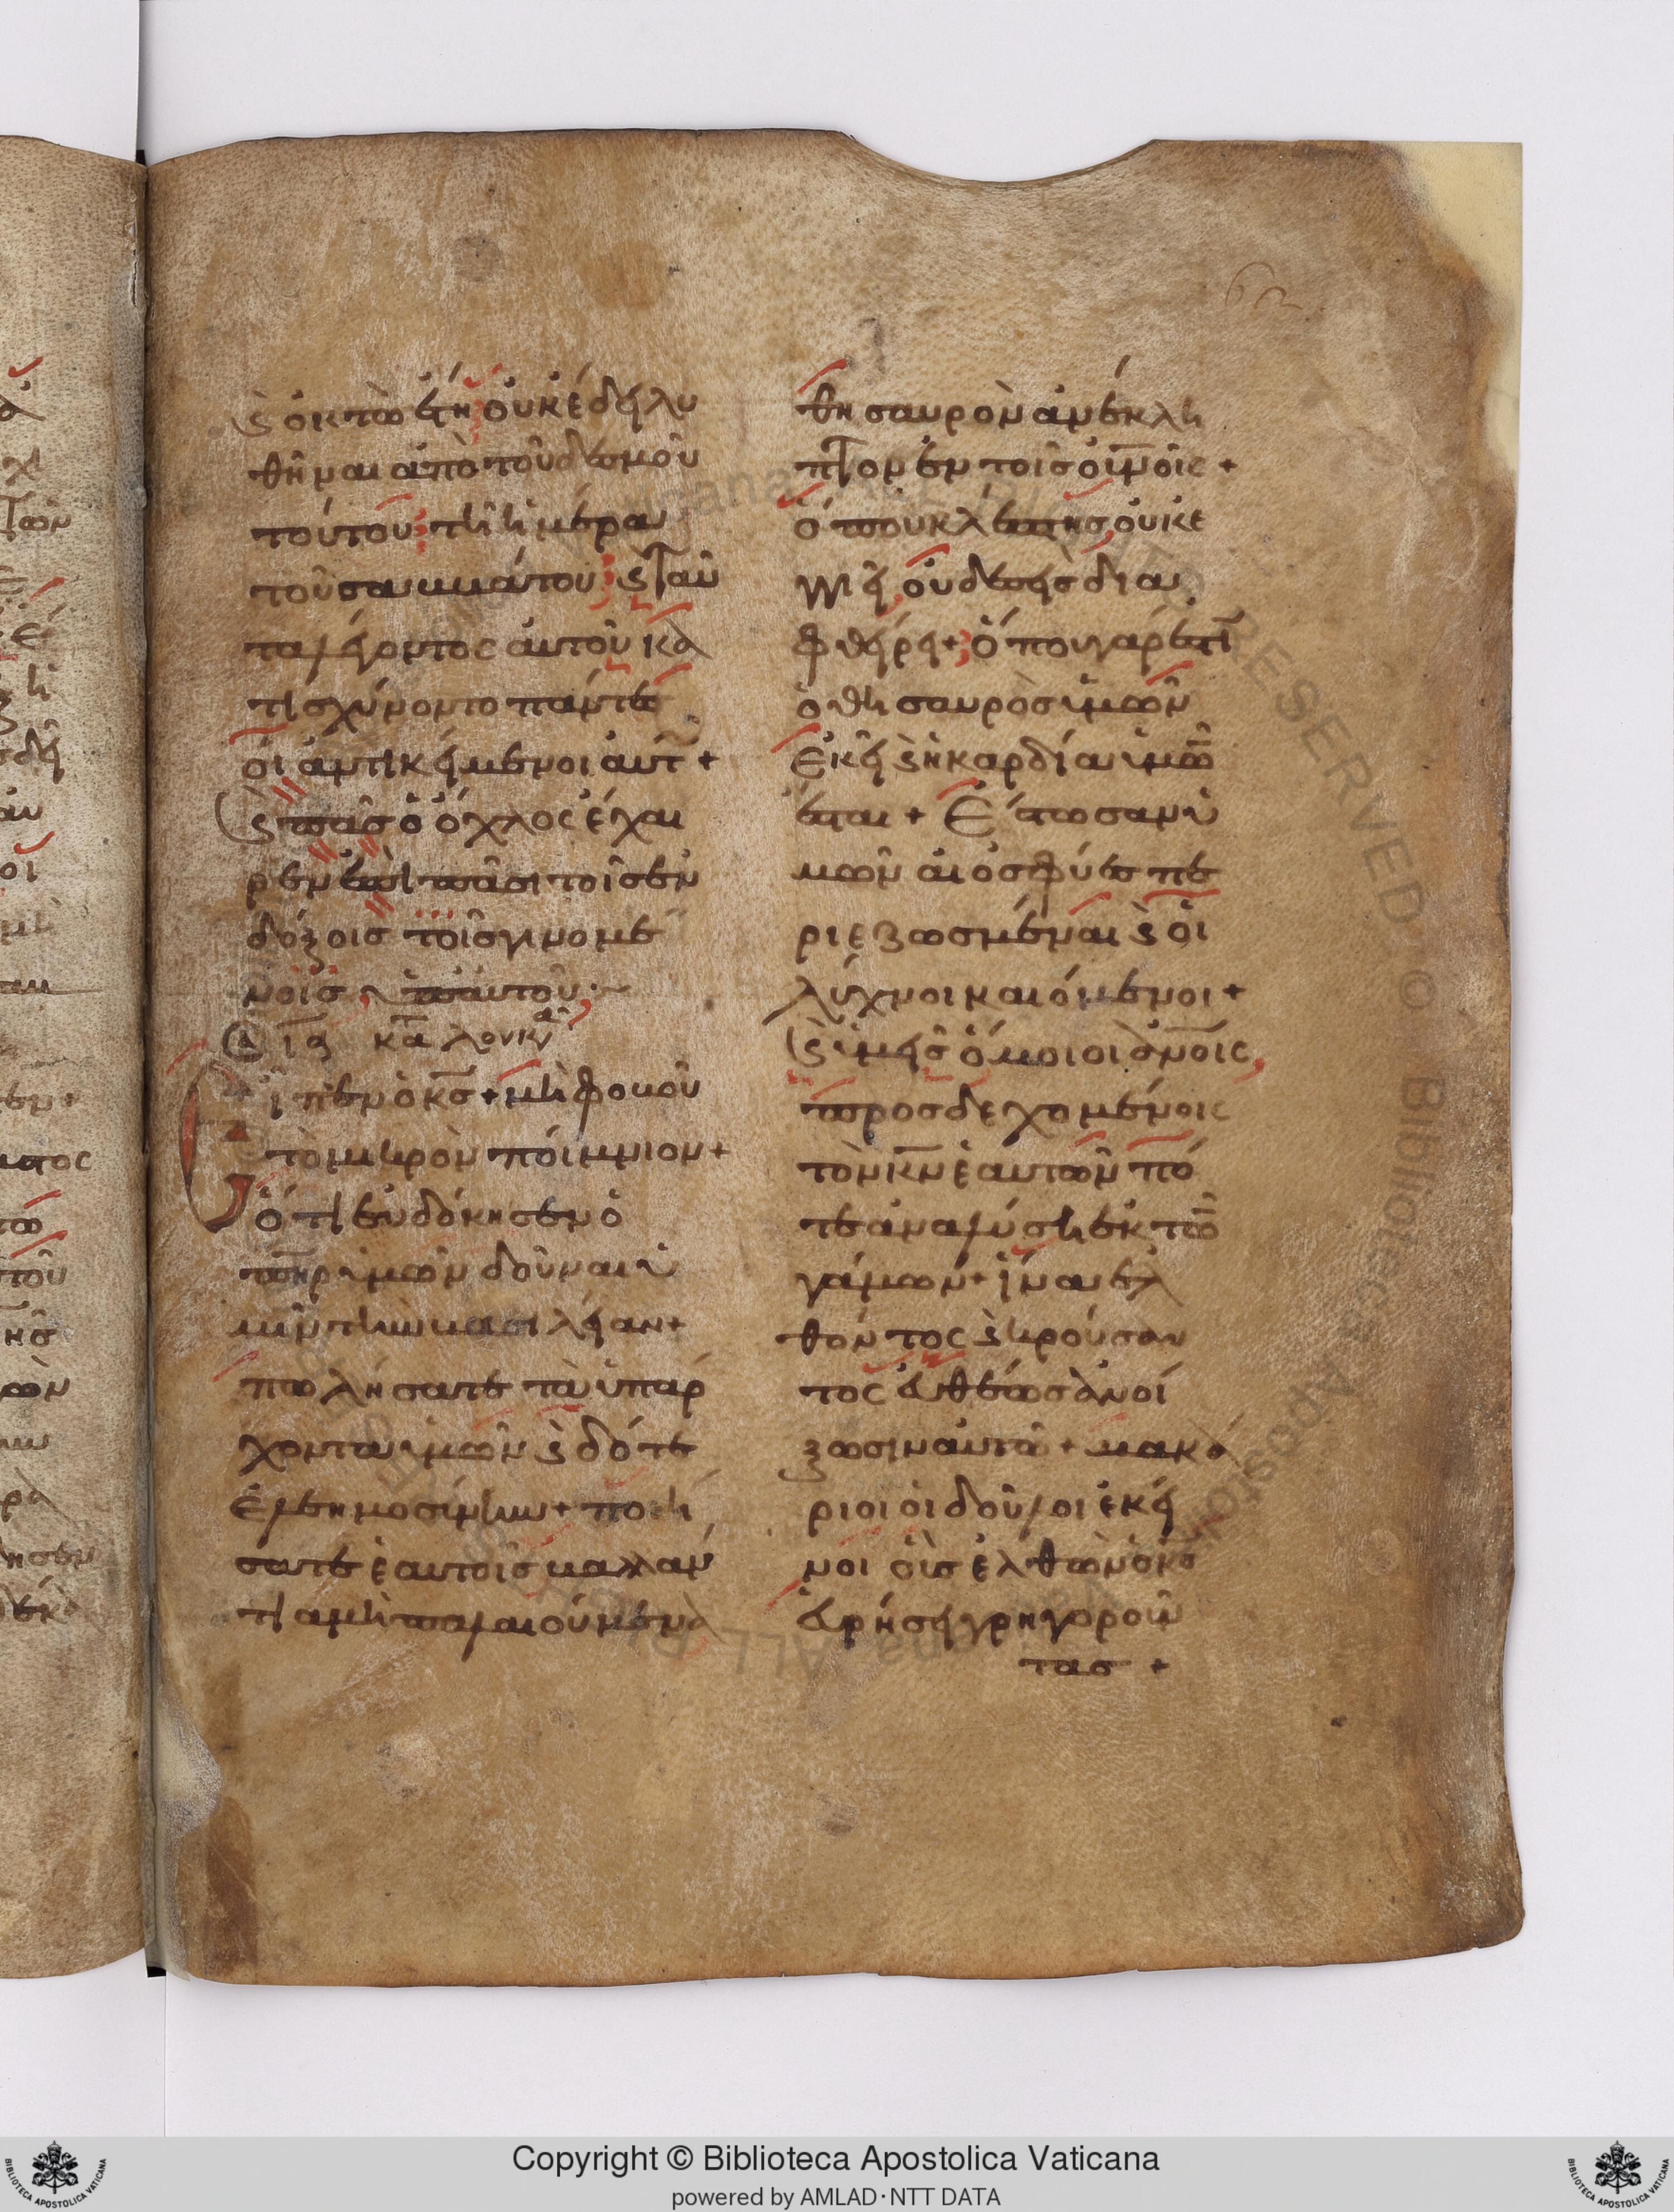 ϛ ὀκτὼ ἔτη οὐκ ἔδει λυ
θῆναι ἀπὸ τοῦ δεσμοῦ
τούτου τῆ ἡμέρα
τοῦ σαββάτου ϛ ταῦ
τα λέγοντος αὐτοῦ κα
τισχύνοντο πάντες
οἱ ἀντικείμενοι αὐτ +
ϛ πᾶσ ὁ ὄχλος ἔχαι
ρεν ἐπὶ πᾶσι τοῖσ ἐν
δόξοισ τοῖσ γινομέ
νοισ ὑπ αὐτοῦ
κατα λουκ
ἶπεν ὁ κσ + μὴ φοβοῦ
τὸ μικρὸν ποίμνιον +
ὅτι εὐδόκησεν ὁ
πηρ ὑμῶν δοῦναι ὑ
μῖν τὴν βασιλείαν +
πωλήσατε τὰ ὑπάρ
χοντα ὑμῶν ϛ δότε
ἐλεημοσύνην + ποιή
σατε ἑαυτοῖσ βαλλάν
τια μὴ παλαιούμενα
θησαυρὸν ἀνέκλη
πτον ἐν τοῖσ οὐνοῖς +
ὅπου κλέπτησ οὐκ ἐ
γγίζει οὐδὲ σὴσ δια
φθείρει + ὅπου γάρ ἐστι
ὁ θησαυρὸσ ὑμῶν
ἐκεῖ ϛ ἡ καρδία ὑμῶ
ἔσται + Ἔστωσαν ὑ
μῶν αἱ ὀσφύεσ πε
ριεζωσμέναι ϛ οἱ
λύχνοι καιόμενοι +
ϛ ὑμεῖσ ὅμοιοι ἀνοις
προσδεχομένοις
τὸν κν ἑαυτῶν πό
τε ἀναλύσῃ ἐκ τῶ
γάμων + ἵνα ἐλ
θόντος ϛ κρούσαν
τος εὐθέωσ ἀνοί
ξωσιν αὐτῶ + μακά
ριοι οἱ δοῦλοι ἐκεῖ
νοι οὓσ ἐλθὼν ὁ κσ
εὑρήσει γρηγοροῦ
τας +
Copyright © Biblioteca Apostolica Vaticana
powered by AMLAD·NTT DATA